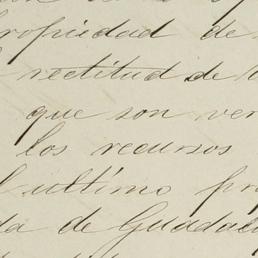 ropiedad de
rectitud de
que son ver
los recursos
l ultimo pro
da de Guadal